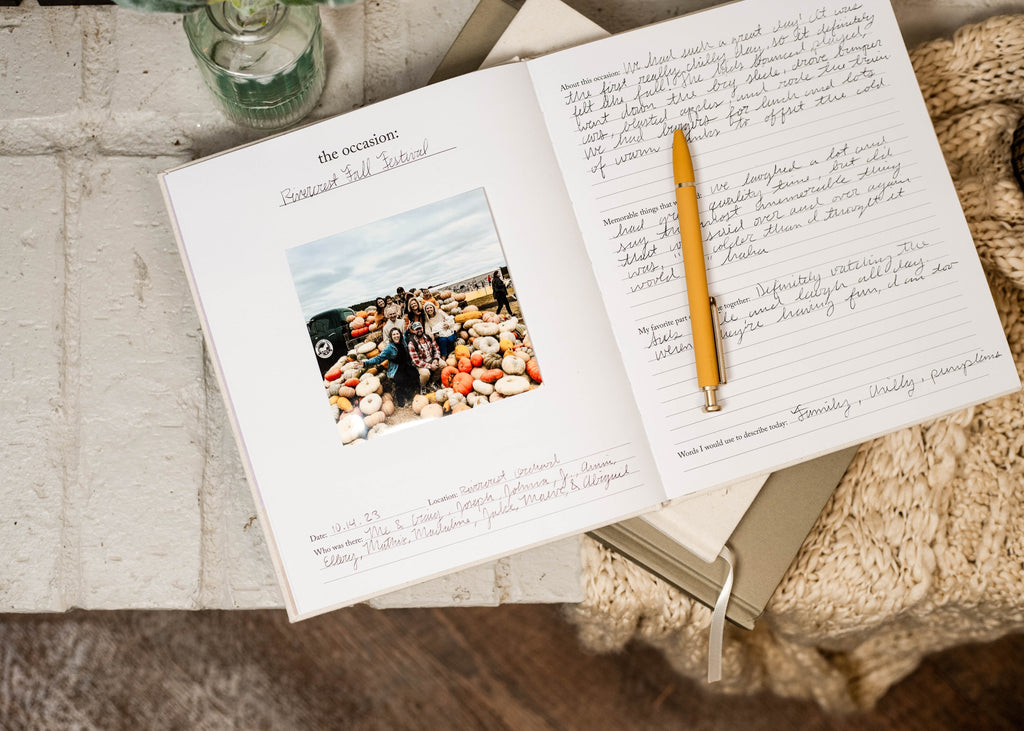 the occasion:
Rivercrest Fall Festival
Location: Rivercrest Orchard
Date: 10.14.23
Who was there: Me & Craig, Joseph, Johnna, Jr., Annin,
Ellery, Mathis, Madaline, Jake, Maeve & Abigail
About this occasion: We had such a great day! It was
the first really chilly day, so it definitely
felt like fall! The kids bounced, played,
went down the big slide, drove bumper
cars, blasted apples, and rode the train
We had burgers for lunch and lots
of warm drinks to offset the cold
Memorable things that we laughed a lot and
had quality time, but did
say the most memorable thing
that was said over and over again
was, colder than I thought it
would haha
My favorite part together: Definitely watching the
kids and laugh all day.
When they're having fun, I am too
Words I would use to describe today: Family, chilly, pumpkins